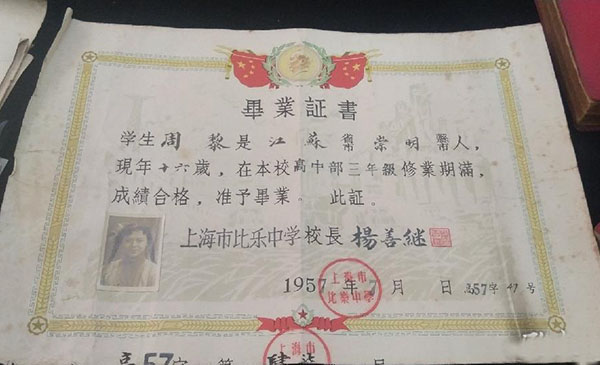 畢業証書
学生周黎是江蘇省崇明縣人，
現年十六歲，在本校高中部三年級修業期滿，
成績合格，准予畢業。 此証。
上海市比乐中学校長 楊善继
1957年7月 日 高57字47号
上海市
比樂中學
高57字第肆柒号
上海市